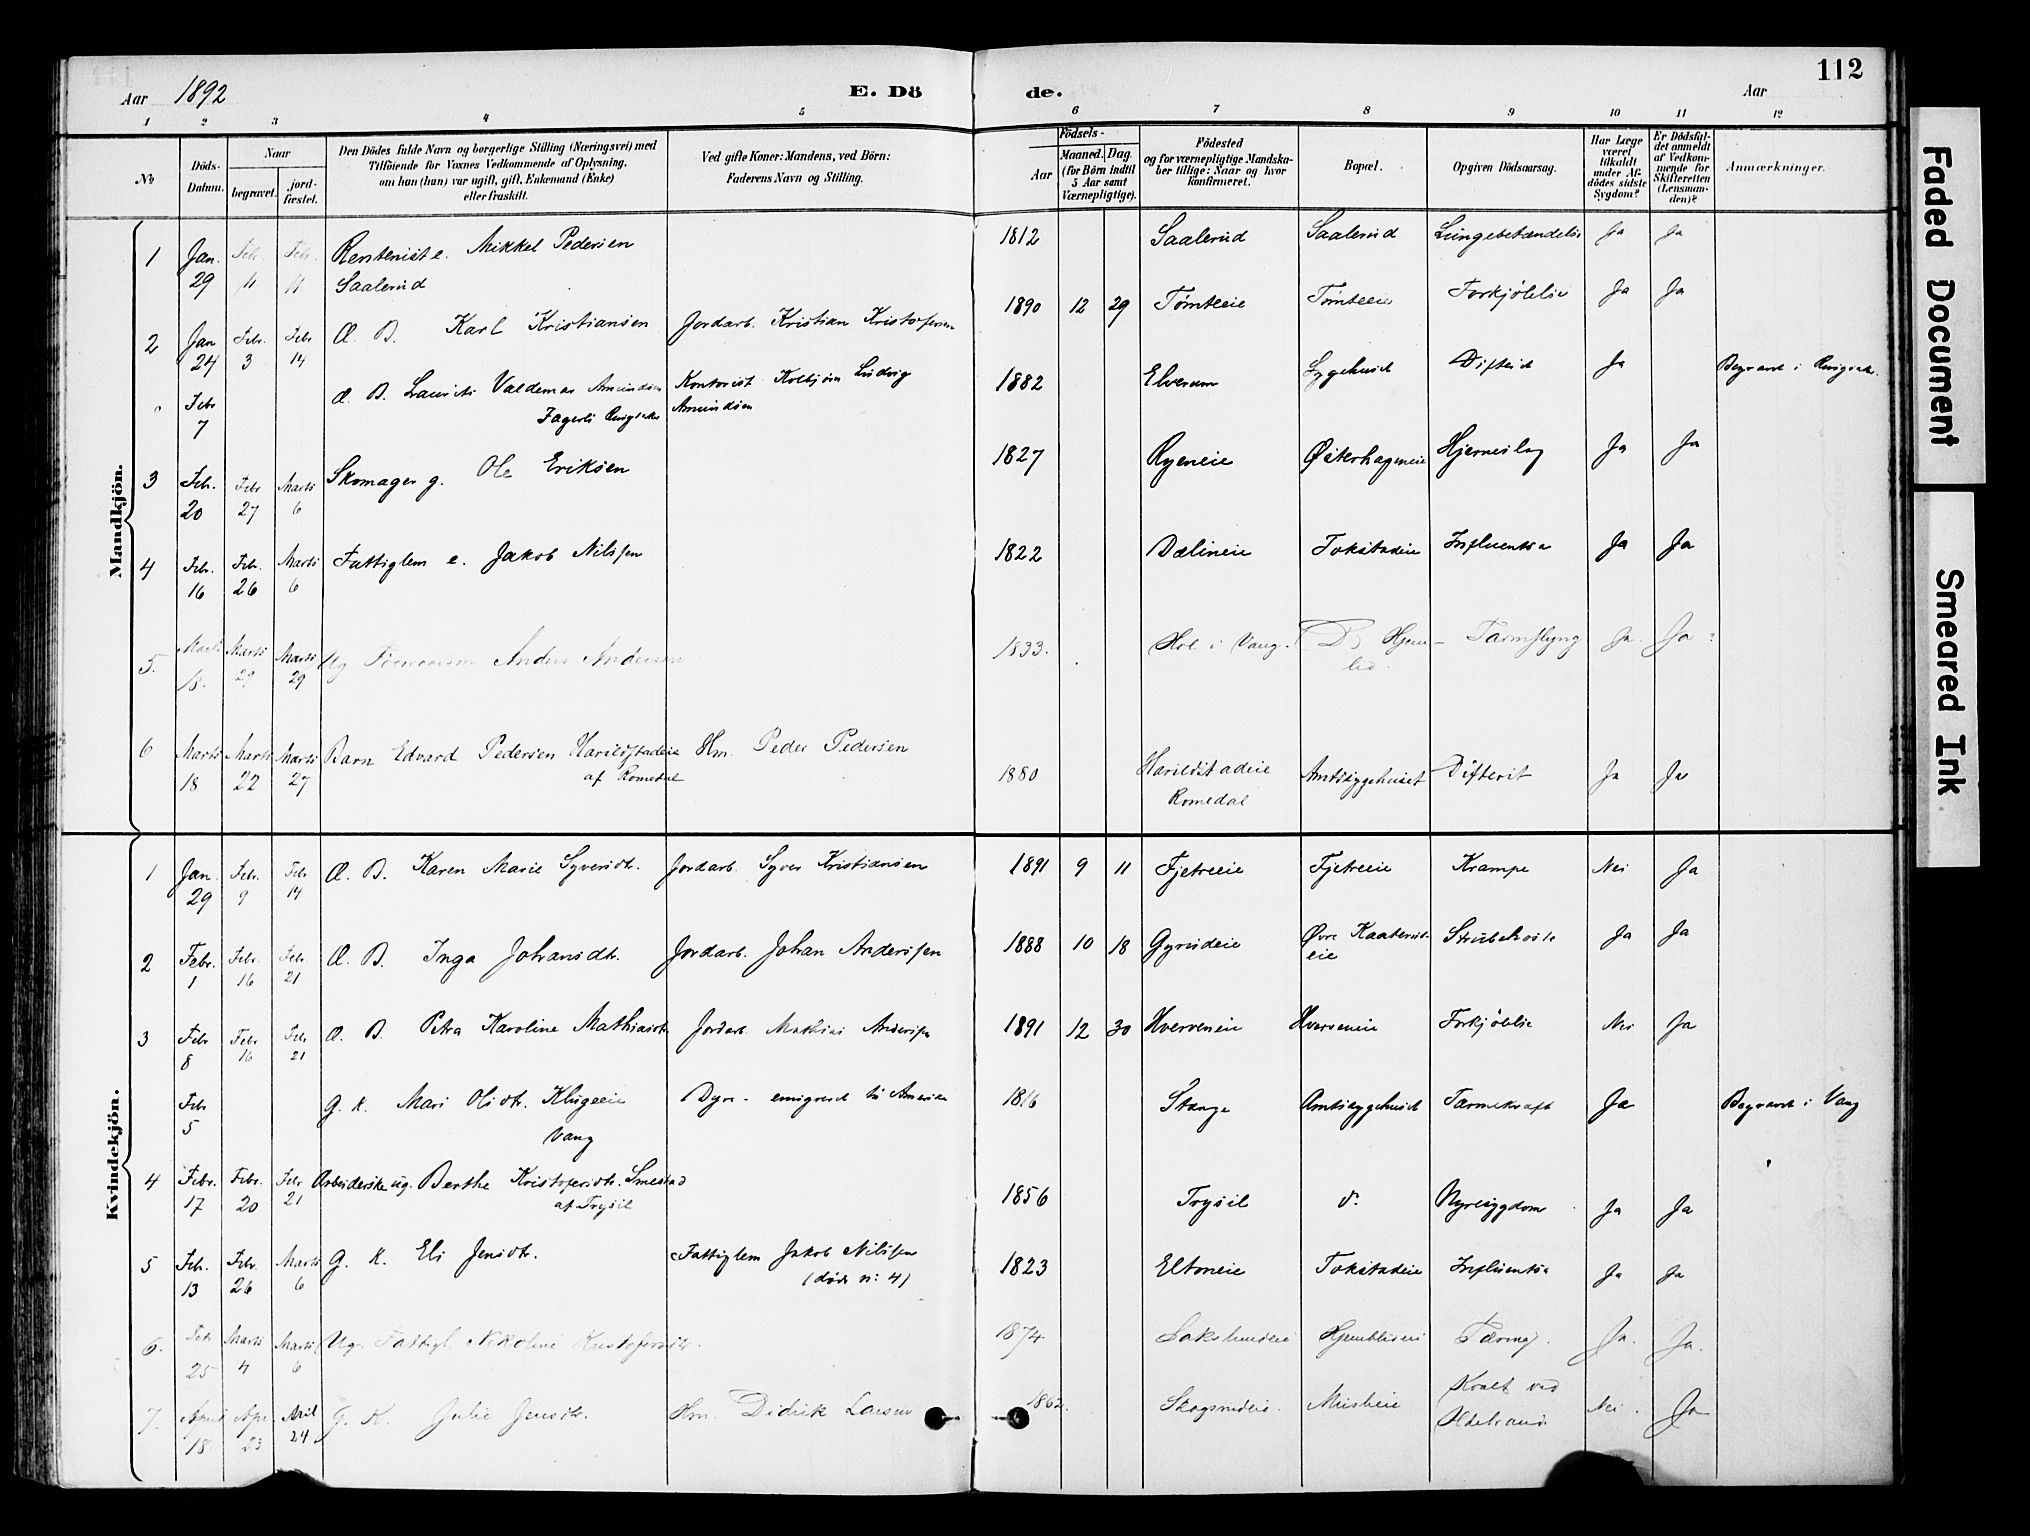 Aar 1892
E. Dö
de.
Aar
112
1 2 3 4 5 6 7 8 9 10 11 12
No
Döds-Datum.
Naar
begravet.
jord-fæstet.
Den Dödes fulde Navn og borgerlige Stilling (Næringsvei) med
Tilföiende for Voxnes Vedkommende af Oplysning,
om han (hun) var ugift, gift, Enkemand (Enke)
eller fraskilt.
Ved gifte Koner: Mandens, ved Börn:
Faderens Navn og Stilling.
Födsels-
Aar
Maaned. Dag.
(for Börn indtil
5 Aar samt
Værnepligtige).
Födested
og for værnepligtige Mandska-
ber tillige: Naar og hvor
konfirmeret.
Bopæl.
Opgiven Dödsaarsag.
Har Læge
været
tilkaldt
under Af-
dödes sidste
Sygdom?
Er Dödsfal-
det anmeldt
af Vedkom-
mende for
Skifteretten
(Lensman-
den)?
Anmærkninger.
Mandkjön.
1 Jan. 29 Febr. 11 Febr. 11 Rentenist e. Mikkel Pedersen 1812 Saalerud Saalerud Lungebetændelse Ja Ja
Saalerud
2 Jan 24 Febr. 3 Febr 14 Æ. B. Karl Kristiansen Jordarb. Kristian Kristofersen 1890 12 29 Tømteeie Tømteeie Forkjølelse Ja Ja
Febr 7 Æ. B. Laurits Valdemar Amundsen Kontorist Kolbjørn Ludvig 1882 Elverum Sygehuset Difterit Ja Begravet i Ringsak.
Fagerli Ringsaker Amundsen
3 Feb. 20 Febr 27 Marts 6 Skomager g. Ole Eriksen 1827 Ryeneie Østerhageneie Hjerneslag Ja Ja
4 Febr. 16 Febr. 26 Marts 6 Fattiglem e. Jakob Nilssen 1822 Dælineie Tokstadeie Influentsa Ja Ja
5. Marts 18. Marts 29 Marts 29 Ug Anders Andersen 1833. Hol i Vang. Hjem- Tarmslyng Ja. Ja
6 Marts 18 Marts 22 Marts 27 Barn Edvard Pedersen Harildstadeie Hm. Peder Pedersen 1880 Harildstadeie Amtssygehuset Difterit Ja Ja
af Romedal Romedal
Kvindekjön.
1 Jan. 29 Febr. 9 Febr 14 Æ. B. Karen Marie Syversdtr. Jordarb. Syver Kristiansen 1891 9 11 Fjetreeie Fjetreeie Krampe Nei Ja
2 Febr. 1 Febr. 16 Febr 21 Æ. B. Inga Johansdtr. Jordarb. Johan Anderssen 1888 10 18 Gyrudeie Øvre Kaaterud- Strubehoste Ja Ja
eie
3 Febr 8 Febr 16 Febr. 21 Æ. B. Petra Karoline Mathiasdtr Jordarb. Mathias Anderssen 1891 12 30 Hverveneie Hverveneie Forkjølelse Nei Ja
Febr 5 G. K. Mari Olsdtr. Klugeeie Dyre- emigreret til Amerika 1816 Stange Amtssygehuset Tarmekræft Ja Begravet i Vang
Vang
4 Febr. 17 Febr. 20 Febr 21 Arbeiderske ug. Berthe Kristofersdtr. Smestad 1856 Trysil do Nyresygdom Ja Ja
af Trysil
5 Feb. 13 Febr. 26 Marts 6 G. K. Eli Jensdtr. Fattiglem Jakob Nilssen 1823 Eltoneie Tokstadeie Influentsa Ja Ja
(døde n: 4)
6. Febr 25 Marts 4 Marts 6 Ug. Fattigl. Nikoline Kristofersdtr. 1874 Hjemblieie Tæring. Ja. Ja.
7. April 18. Apr. 23 April 24 G. K. Julie Jensdtr. Hm. Didrik Larsen 1862. Skogsrudeie. Nei. Ja
Kvalt ved
Ildebrand.
Faded Document
Smeared Ink